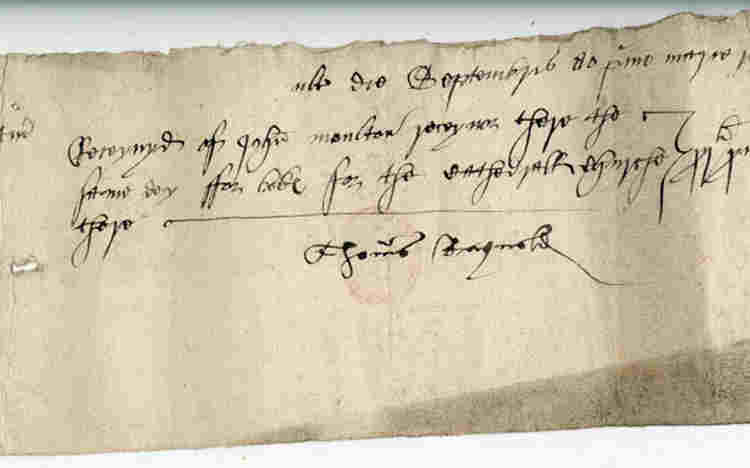 ult die Septembris Ao primo marie
Receyvyd of John moulton receyvor there the
same day ffor for the Cathedrall Churche
there
Thoms Bagnold